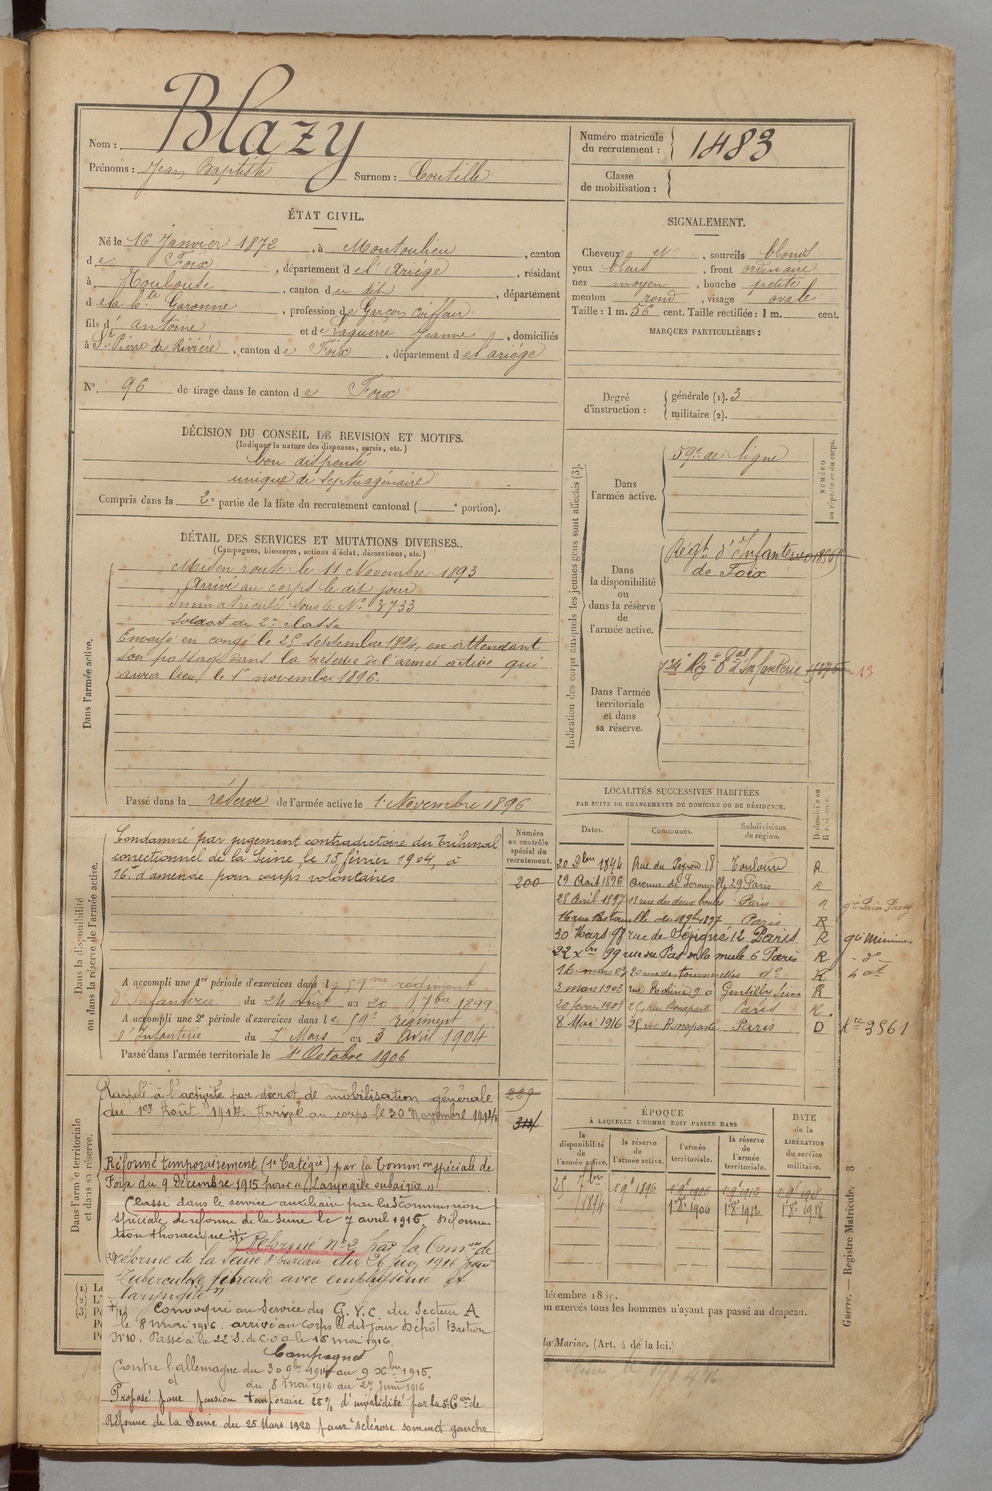 Nom : Blazy
Prénoms : Jean Baptiste Surnom : Coutille
Numéro matricule du recrutement : 1483
Classe de mobilisation :
ÉTAT CIVIL.
Né le 16 Janvier 1872, à Montoulieu, canton
de Foix, département de l'Ariège, résidant
à Toulouse, canton du dit, département
de la Hte Garonne, profession de Garçon Coiffeur
fils d'antoine et de Laguerre Jeanne, domiciliés
à St Pierre de Rivière, canton de Foix, département de l'ariège
N° 96 de tirage dans le canton de Foix
SIGNALEMENT.
Cheveux et, sourcils blonds
yeux bleus, front ordinaire
nez moyen, bouche petite
menton rond, visage ovale
Taille : 1 m. 56 cent. Taille rectifiée : 1 m. cent.
MARQUES PARTICULIÈRES :
Degré d'instruction : générale (1). 3
militaire (2).
DÉCISION DU CONSEIL DE REVISION ET MOTIFS.
(Indiquer la nature des dispenses, sursis, etc.)
bon dispensé
unique de septuagénaire
Compris dans la 2e partie de la liste du recrutement cantonal ( e portion).
DÉTAIL DES SERVICES ET MUTATIONS DIVERSES.
(Campagnes, blessures, actions d'éclat, décorations, etc.)
Dans l'armée active.
Mis en route le 11 Novembre 1893
Arrivé au corps le dit jour
Immatriculé sous le N° 3733
soldat de 2e classe
Envoyé en congé le 25 septembre 1894, en attendant
son passage dans la réserve de l'armée active qui
aura lieu le 1er novembre 1896.
Passé dans la réserve de l'armée active le 1er Novembre 1896
Indication des corps auxquels les jeunes gens sont affectés (3).
NUMÉRO au répertoire du corps.
Dans l'armée active.
59e de ligne
Dans la disponibilité ou dans la réserve de l'armée active.
Régt d'Infanterie
de Foix
Dans l'armée territoriale et dans sa réserve.
Régt d'Infanterie
13
Dans la disponibilité ou dans la réserve de l'armée active.
Numéro au contrôle spécial du recrutement.
200
Condamné par jugement contradictoire du Tribunal
correctionnel de la Seine le 15 février 1904, à
16f d'amende pour coups volontaires
A accompli une 1re période d'exercices dans le 59me régiment
d'Infanterie du 24 Août au 20 7bre 1899
A accompli une 2e période d'exercices dans le 59e régiment
d'Infanterie du 7 Mars au 3 Avril 1904
Passé dans l'armée territoriale le 1er Octobre 1906
LOCALITÉS SUCCESSIVES HABITÉES
PAR SUITE DE CHANGEMENTS DE DOMICILE OU DE RÉSIDENCE.
Dates. Communes. Subdivisions de région.
20 1894 Rue du Peyrou 18 Toulouse R
29 Août 1896 Avenue de 29 Paris R
28 Avril 1897 13 rue des deux boules Paris R
1897 Paris R
30 Mars 98 rue de Sévigné 12 Paris R
22 Xbre 99 rue du Pas de la mule 6 Paris R
16 mars 20 rue des Tournelles do R
3 mars 1903 rue 9 à Gentilly Seine R
20 février 1908 25, Rue Bonaparte Paris R.
8 Mai 1916 25 rue Bonaparte Paris D 3561
Dans l'armée territoriale et dans sa réserve.
Rappelé à l'activité par décret de mobilisation générale
du 1er Août 1914. Arrivé au corps le 30 Novembre 1914
Réformé temporairement (1e Catégie) par la Common spéciale de
Foix du 9 Décembre 1915 pour « Laryngite
Classé dans le service auxiliaire par la 3e Commission
spéciale de réforme de la Seine le 7 avril 1916.
thoracique. Réformé N° 2 par la Comon de
réforme de la Seine bureau du 26 juin 1916 pour
Tuberculose fibreuse avec emphysème et
laryngite
Convoqué au Service des G.V.C. du Secteur A
le 8 mai 1916. arrivé au corps le dit jour Dépôt
N° 10. Passé à le 22 S. de C.O.A le 16 mai 1916
Campagnes
Contre l'allemagne du 30 9bre 1914 au 9 Xbre 1915.
du 8 mai 1916 au 27 Juin 1916
Proposé pour pension temporaire 25% d'invalidité par la 5e Con de
Réforme de la Seine du 25 Mars 1920 pour sclérose sommet gauche
ÉPOQUE
À LAQUELLE L'HOMME DOIT PASSER DANS
la disponibilité de l'armée active. la réserve de l'armée active. l'armée territoriale. la réserve de l'armée territoriale.
DATE de la LIBÉRATION du service militaire.
25 7bre 1894 1896 1906 1912 1918
1er 8bre 1906 1er 8bre 1912 1er 8bre 1918
on exercés tous les hommes n'ayant pas passé au drapeau.
la Marine. (Art. 4 de la loi.)
Guerre. — Registre Matricule. 3